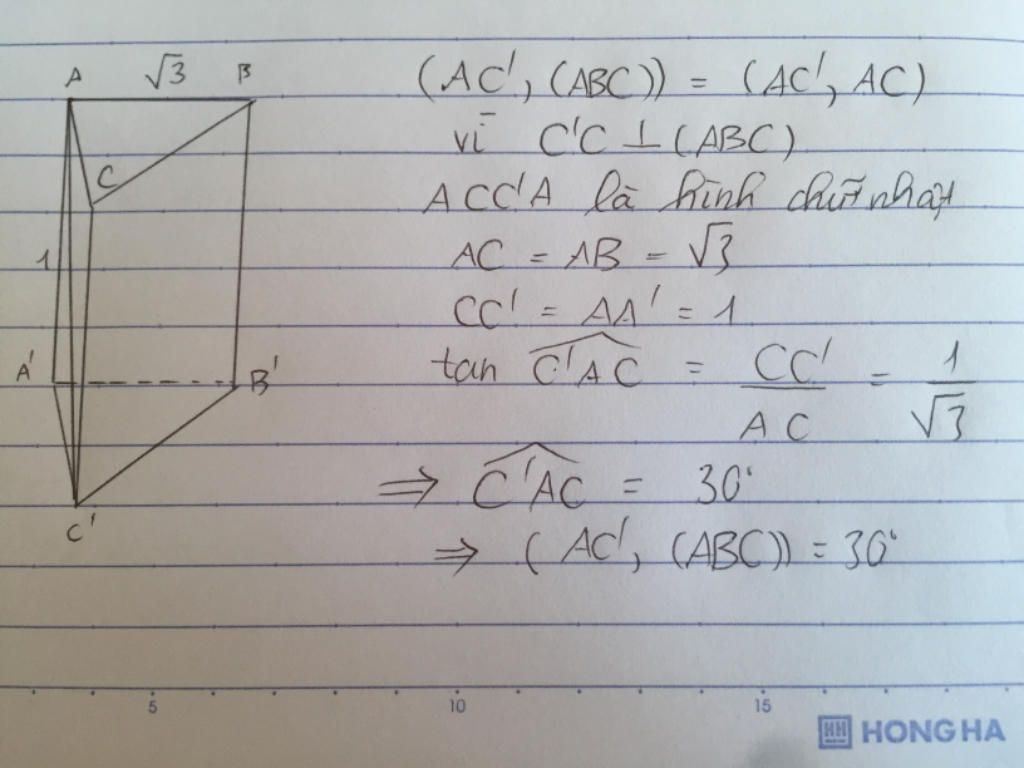 A √3 B
C
1
A'
B'
C'
(AC', (ABC)) = (AC', AC)
vì C'C ⊥ (ABC)
ACC'A là hình chữ nhật
AC = AB = √3
CC' = AA' = 1
tan C'AC = CC'/AC = 1/√3
⇒ C'AC = 30°
⇒ (AC', (ABC)) = 30°
5 10 15
HH HONG HA